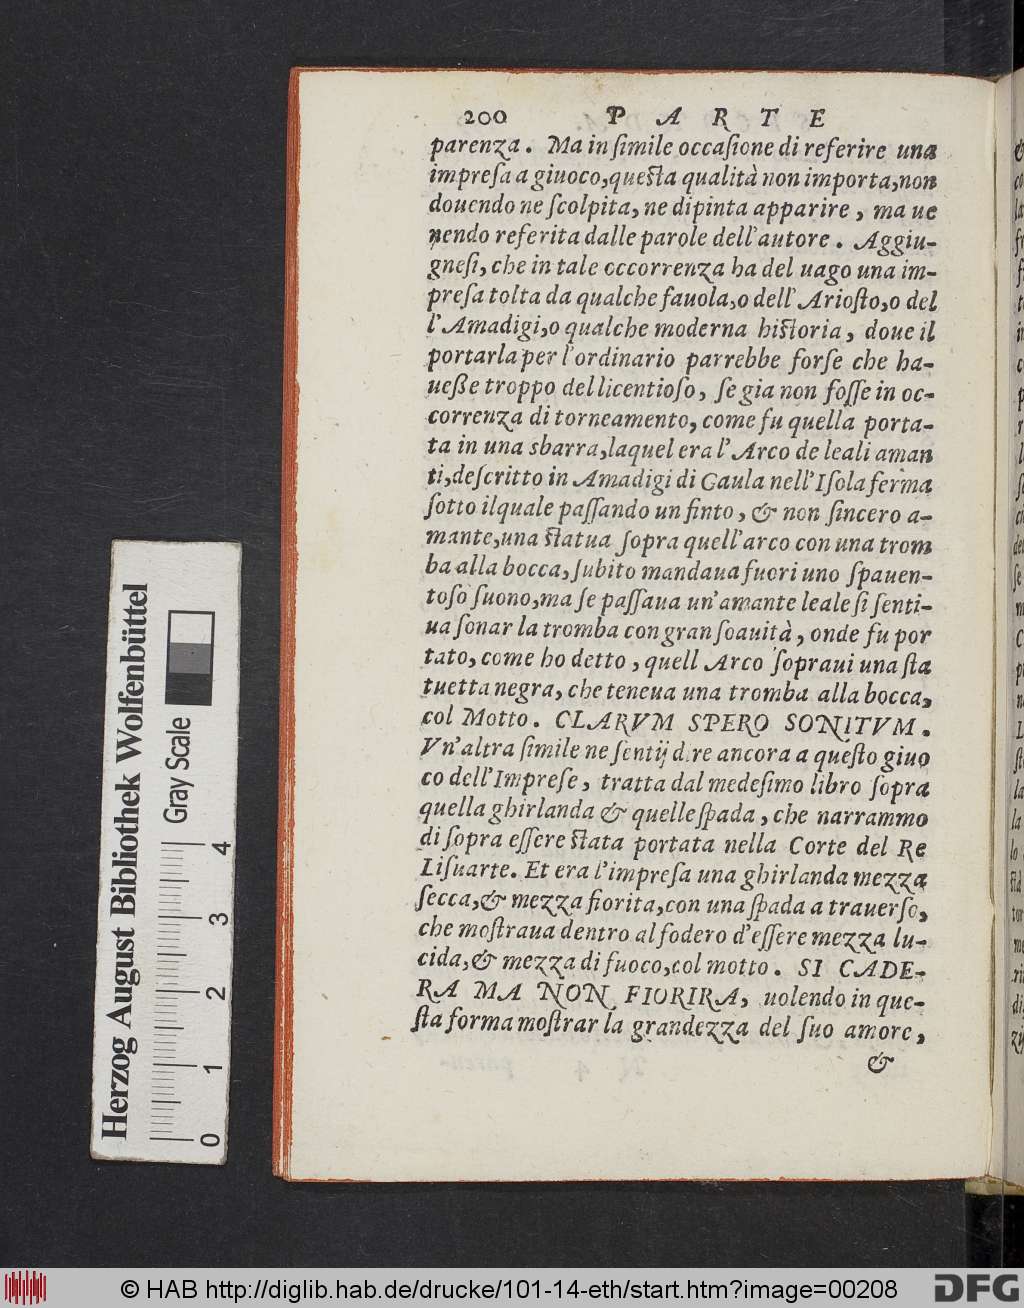 200 PARTE
parenza. Ma in ſimile occaſione di referire una
impreſa a giuoco, queſta qualità non importa, non
douendo ne ſcolpita, ne dipinta apparire, ma ue
nendo referita dalle parole dell'autore. Aggiu-
gneſi, che in tale occorrenza ha del uago una im-
preſa tolta da qualche fauola, o dell'Arioſto, o del
l'Amadigi, o qualche moderna hiſtoria, doue il
portarla per l'ordinario parrebbe forſe che ha-
ueſſe troppo del licentioſo, ſe gia non foſſe in oc-
correnza di torneamento, come fu quella porta-
ta in una sbarra, laquel era l'Arco de leali aman
ti, deſcritto in Amadigi di Gaula nell'Iſola ferma
ſotto ilquale paſſando un finto, & non ſincero a-
mante, una ſtatua ſopra quell'arco con una trom
ba alla bocca, ſubito mandaua fuori uno ſpauen-
toſo ſuono, ma ſe paſſaua un'amante leale ſi ſenti-
ua ſonar la tromba con gran ſoauità, onde fu por
tato, come ho detto, quell Arco ſopraui una ſta
tuetta negra, che teneua una tromba alla bocca,
col Motto. CLARVM SPERO SONITVM.
Vn'altra ſimile ne ſentij dire ancora a queſto giuo
co dell'Impreſe, tratta dal medeſimo libro ſopra
quella ghirlanda & quelle ſpada, che narrammo
di ſopra eſſere ſtata portata nella Corte del Re
Liſuarte. Et era l'impreſa una ghirlanda mezza
ſecca, & mezza fiorita, con una ſpada a trauerſo,
che moſtraua dentro al fodero d'eſſere mezza lu-
cida, & mezza di fuoco, col motto. SI CADE-
RA MA NON FIORIRA, uolendo in que-
ſta forma moſtrar la grandezza del ſuo amore,
&
Herzog August Bibliothek Wolfenbüttel
Gray Scale
0 1 2 3 4
© HAB http://diglib.hab.de/drucke/101-14-eth/start.htm?image=00208
DFG